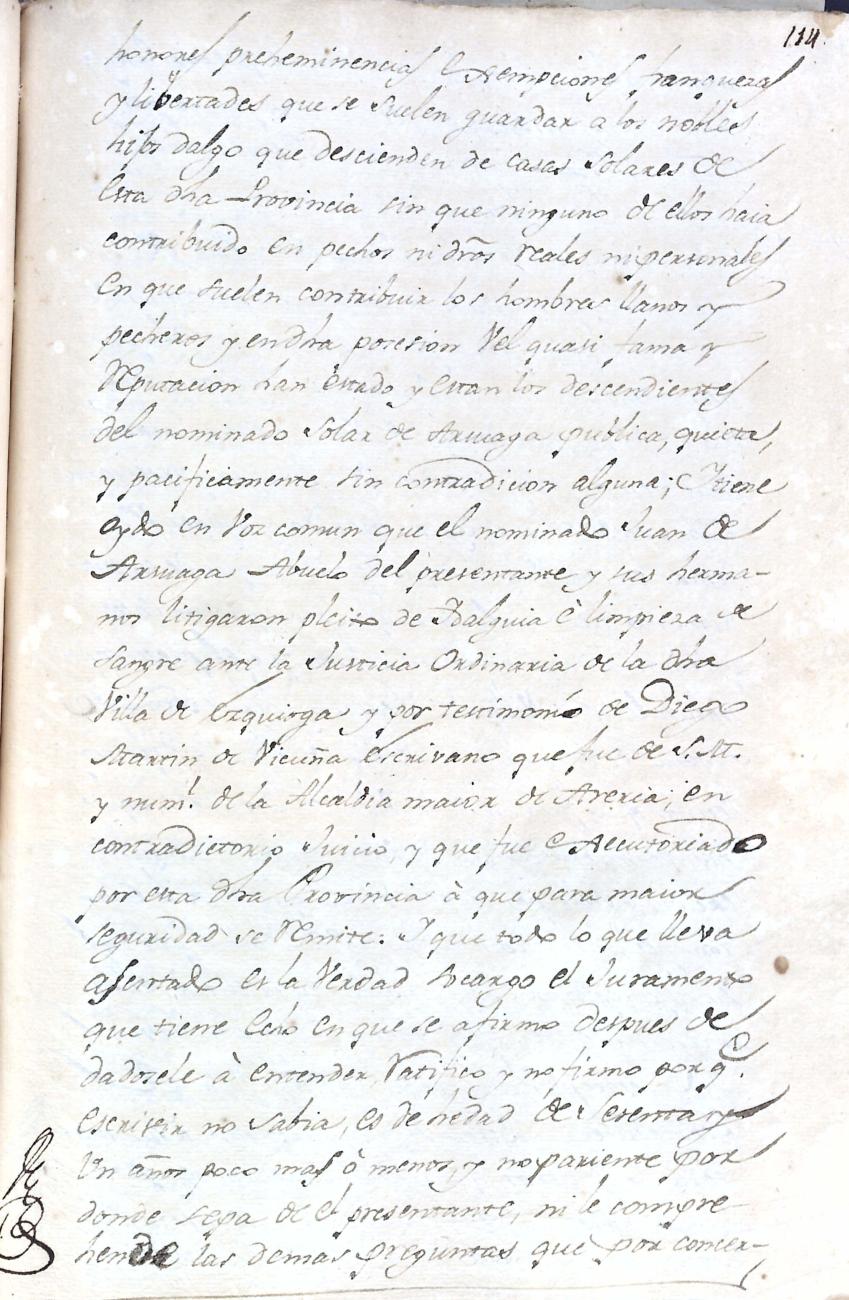 114
honores preheminencias exempciones franquezas
y libertades que se suelen guardar a los nobles
hijos dalgo que descienden de casas solares de
esta dha Provincia sin que ninguno de ellos haia
contribuido en pechos ni dros reales ni personales
en que suelen contribuir los hombres llanos y
pecheros y en dha posesion vel quasi fama y
reputacion han estado y estan los descendientes
del nominado Solar de Arsuaga publica, quieta,
y pacificamente sin contradicion alguna; Itiene
oydo en voz comun que el nominado Juan de
Arsuaga Abuelo del presentante y sus herma-
nos litigaron pleito de Idalguia è limpieza de
sangre ante la Justicia Ordinaria de la dha
Villa de Ezquioga y por testimonio de Diego
Martin de Vicuña Escrivano que fue de S.M.
y numl. de la Alcaldia maior de Areria; en
contradictorio Juicio, y que fue executoriado
por esta dha Provincia à que para maior
seguridad se remite: I que todo lo que lleva
asentado es la Verdad so cargo el Juramento
que tiene echo en que se afirmo despues de
dadosele à entender, ratifico y no firmo por q.e
escrivir no sabia, es de hedad de sesenta y
un años poco mas ò menos, y no pariente por
donde sepa de el presentante, ni le compre-
hende las demas preguntas que por conzer-